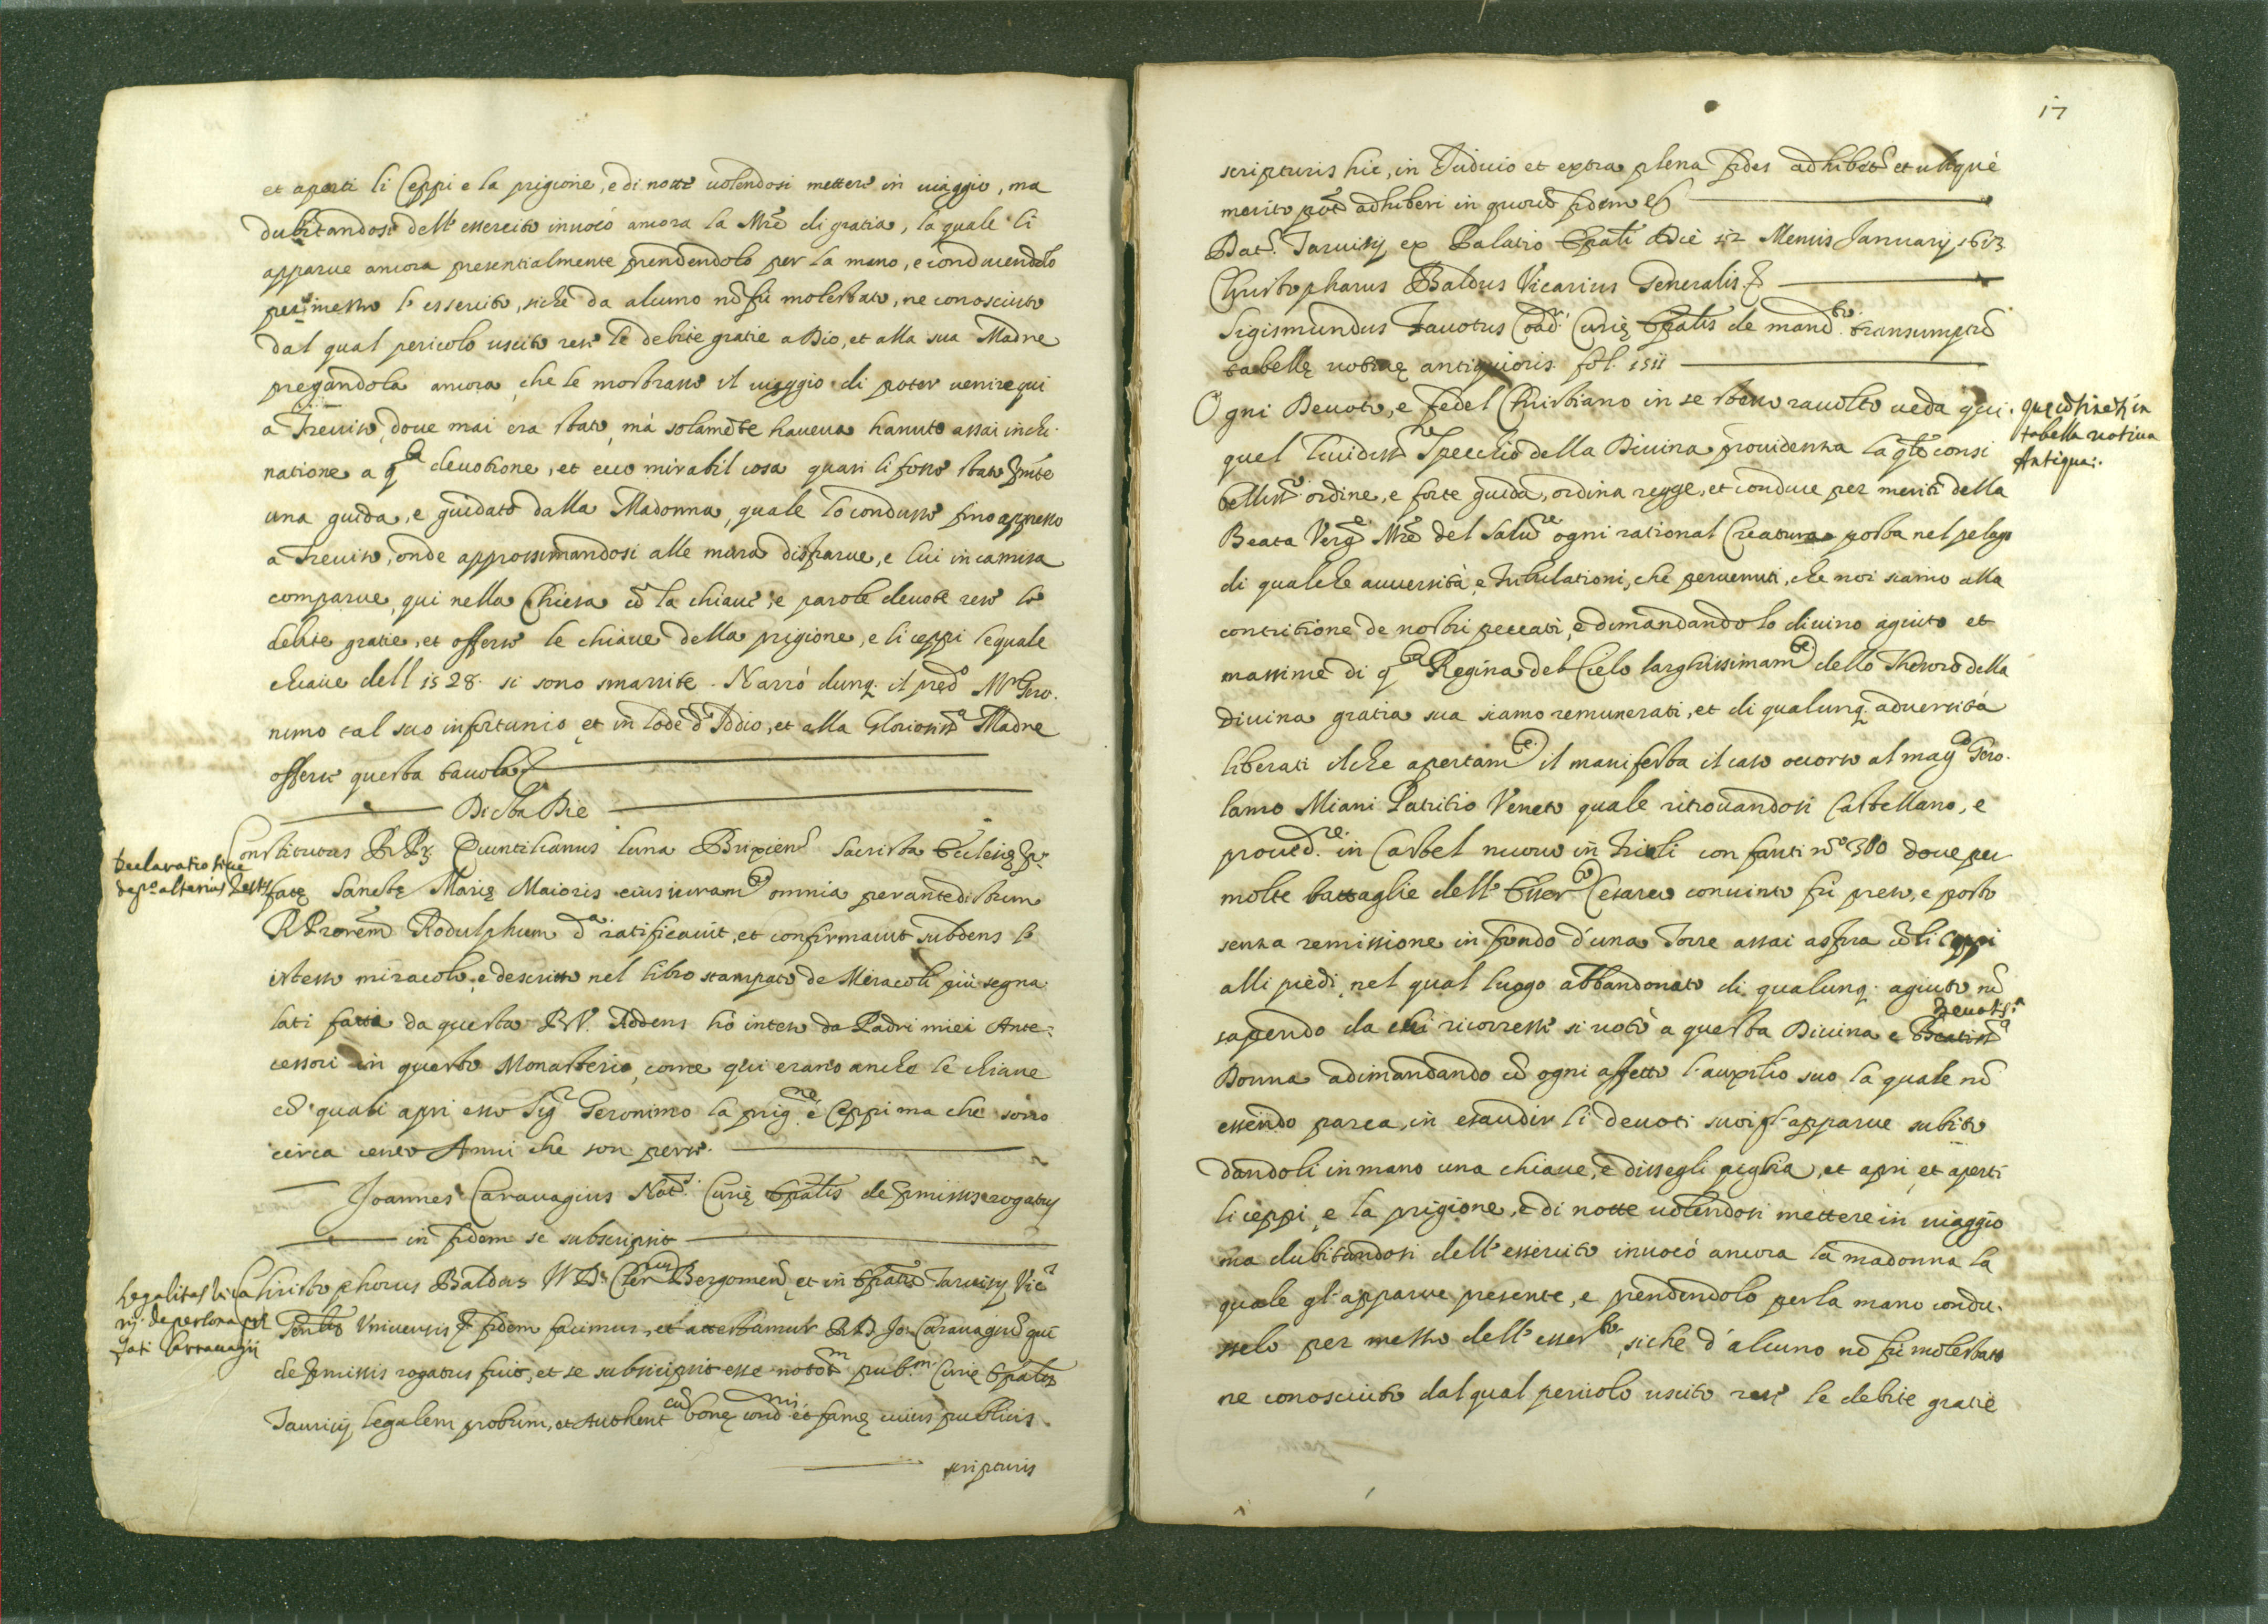 et aperti li Ceppi e la prigione, e di notte uolendosi mettere in uiaggio, ma
dubitandosi dell' essercito inuocò ancora la Mrē di gratia, la quale li
apparue ancora presentialmente prendendolo per la mano, e conducendolo
per mezzo l'essercito, siche da alcuno nō fù molestato, ne conosciuto
dal qual pericolo uscito rese le debite gratie a Dio, et alla sua Madre
pregandola ancora, che le mostrasse il uiaggio di poter uenire qui
a Treuiso, doue mai era stato, mà solamēte haueua hauuto assai incli-
natione a qsta deuotione, et ecco mirabil cosa quasi li fosse stato
una guida, e guidato dalla Madonna, quale lo condusse fino appresso
a Treuiso, onde approssimandosi alle mura disparue, e lui in camisa
comparue, qui nella Chiesa cō la chiaue, e parole deuote rese le
debite gratie, et offerse le chiaue della prigione, e li ceppi le quale
chiaue dell 1528. si sono smarrite. Narrò dunq. il pred.o Mr Gero-
nimo tal suo infortunio, et in lode d' Iddio, et alla Gloriosissa Madre
offerse questa tauola
Dicta Die
Constitutus R.P. Quintilianus Luna Brixien. Sacrista Ecclesię
fatę Sanctę Marię Maioris eius iuram.to omnia per antedictum
R. Priorem Rodulphum d.a ratificauit, et confirmauit subdens lo
istesso miracolo, e descritto nel libro stampato de Miracoli più segna-
lati fatti da questa B.V. Addens hò inteso da Padri miei Ante-
cessori in questo Monasterio, come qui erano anche le chiaue
cō quali aprì esso Sig.r Geronimo la prig.ne è Ceppi ma che sono
circa cento Anni che son perse.
Joannes Carauagius Not.s Curię Epālis de pmissis rogatus
in fidem se subscripsit
Christophorus Baldus I.V.D. Cler.us Bergomen. et in Epātu Taruisij Vic.s
Gen.lis Vniuersis fidem facimus, et attestamur R.D. Jo. Carauagiū qui
de pmissis rogatus fuit, et se subscripsit esse notor.m pub.m Curię Epālis
Taruisij legalem probum, et Authent.cū bonę cond.nis et famę cuius publicis
scripturis
Declaratio siue
dep.o alterius Testis
Legalitas Vica
rij de persona pre
fati Carrauagij
17
scripturis hic, in Judicio et extra plena fides adhibet.r et ubique
merito pōt adhiberi in quorū fidem
Dat. Taruisij ex Palatio Epāli Die 12 Mensis Januarij 1613
Christopharus Baldus Vicarius Generalis
Sigismundus Zauotus Coad.r Curię Epālis de mand.to transumpti
tabellę uotiuę antiquioris fol. 1511
Ogni Deuoto, e fedel Christiano in se stesso raccolto ueda qui
quel lucidiss.o Specchio della Diuina prouidenza la qlē consi
belliss.o ordine, e forte guida, ordina regge, et conduce per meriti della
Beata Verg.e Mrē del Saluē ogni rational Creatura posta nel pelago
di qualche auuersità, e tribulationi, che peruenuti, che noi siamo alla
contritione de nostri peccati, e dimandando lo diuino agiuto et
massime di qsta Regina del Cielo larghissimam.te dello Thesoro della
Diuina gratia sua siamo remunerati, et di qualunq. aduersità
liberati ilche apertam.te il manifesta il caso occorso al mag.o Gero-
lamo Miani Patritio Veneto quale ritrouandosi Castellano, e
proued.re in Castel nuouo in Friuli con fanti n.o 300 doue per
molte battaglie dell' Esser.to Cesareo conuinto fù preso, e posto
senza remissione in fondo d'una Torre assai aspra cō li Ceppi
alli piedi, nel qual luogo abbandonato di qualunq. agiuto nō
sapendo da chi ricorresse si uotò a questa Diuina e Beatiss.a Deuotis.a
Donna adimandando cō ogni affetto l'auxilio suo la quale nō
essendo parca, in esaudir li deuoti suoi gl' apparue subito
dandoli in mano una chiaue, e dissegli piglia, et apri, et aperti
li ceppi, e la prigione, e di notte uolendosi mettere in uiaggio
ma dubitandosi dell' essercito inuocò ancora la madonna la
quale gl' apparue presente, e prendendolo per la mano condu-
sselo per mezzo dell' esser.to, siche d'alcuno nō fù molestato
ne conosciuto dal qual pericolo uscito rese le debite gratie
Que cōtinet.r in
tabella uotiua
Antiqua.